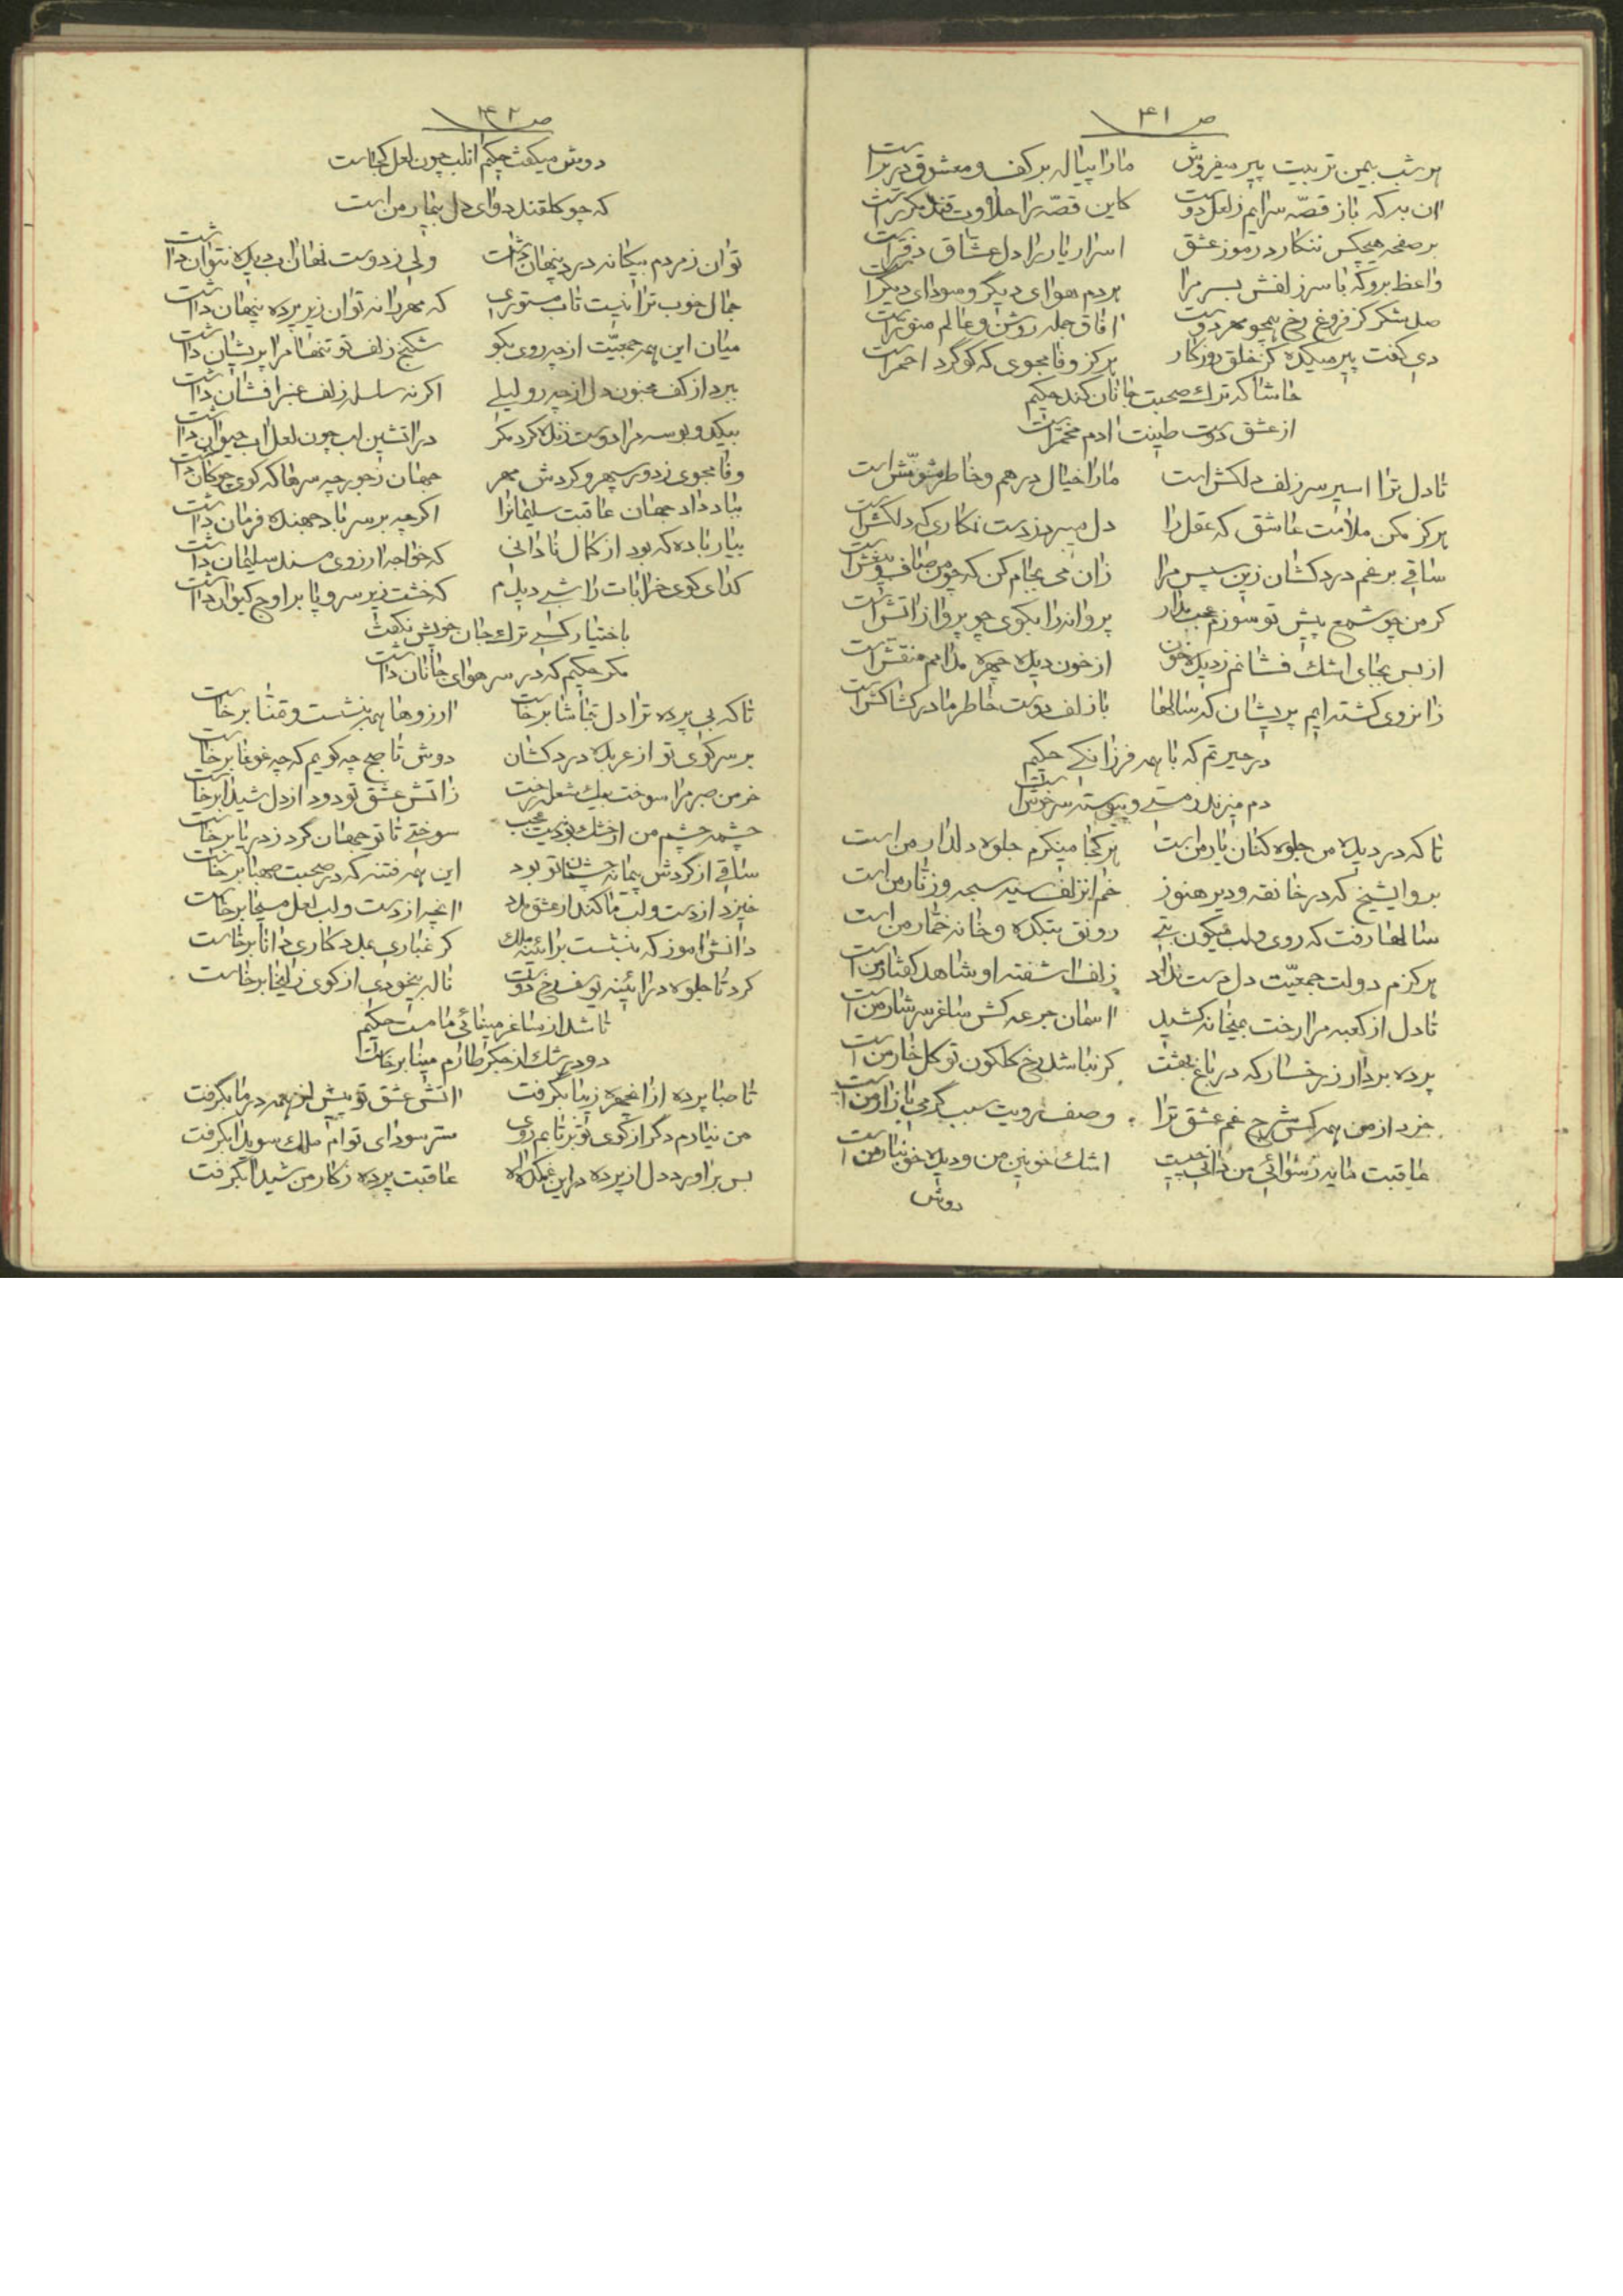 ص ۴۱
هر شب بیمن تربیت پیر میفروش مارا پیاله بر کف و معشوق در براست
ان به که باز قصّه سرایم ز لعل دوست کاین قصّه را حلاوت قند مکرراست
بر صفحه هیچکس ننکارد رموز عشق اسرار یار را دل عشاق دفتراست
واعظ برو که با سر زلفش بسر مرا هردم هوای دیگر و سودای دیگراست
صد شکر کز فروغ رخ همچو مهر دوست افاق جمله روشن و عالم منوراست
دی کفت پیر میکده کز خلق روزکار هرکز وفا مجوی که کوکرد احمراست
حاشا که ترک صحبت جانان کند حکیم
از عشق دوست طینت ادم مخمراست
تا دل ترا اسیر سر زلف دلکش است مارا خیال درهم و خاطر مشوّش است
هرکز مکن ملامت عاشق که عقل را دل میبرد ز دست نکاری که دلکش است
ساقی برغم دردکشان زین سپس مرا زان می بجام کن که چو من صاف و بیغش است
کر من چو شمع پیش تو سوزم عجب مدار پروانه را بکوی چو پروا ز اتش است
از بس بجای اشک فشانم ز دیده خون از خون دیده چهره مدامم منقش است
زانروی کشته ایم پریشان که سالها با زلف دوست خاطر ما در کشاکش است
در حیرتم که با همه فرزانکی حکیم
دم میزند ز مستی و پیوسته سرخوش است
تا که در دیده من جلوه کنان یار من است هر کجا مینکرم جلوه دلدار من است
برو ایشیخ که در خانقه و دیر هنوز خم انزلف سیه سبحه و زنار من است
سالها رفت که روی و لب میکون بتی رونق بتکده و خانه خمّار من است
هرکزم دولت جمعیّت دل دست نداد زلف اشفته او شاهد کفتار من است
تا دل از کعبه مرا رخت بمیخانه کشید اسمان جرعه کش ساغر سرشار من است
پرده بردار ز رخسار که در باغ بهشت کر نباشد رخ کلکون تو کل خار من است
خرد از من همه کس شرح غم عشق ترا وصف رویت سبب کرمی بازار من است
عاقبت مایه رسوائی من دانی چیست اشک خونین من و دیده خونبار من است
دوش
ص ۴۲
دوش میکفت حکیم انلب چون لعل کجاست
که چو کلقند دوای دل بیمار من است
توان ز مردم بیکانه درد پنهان داشت ولی ز دوست نهان اب دیده نتوان داشت
جمال خوب ترا نیست تاب مستوری که مهر را نه توان زیر پرده پنهان داشت
میان این همه جمعیّت از چه روی بکو شکنج زلف تو تنها مرا پریشان داشت
ببرد از کف مجنون دل از چه رو لیلی اکر نه سلسله زلف عنبر افشان داشت
بیکدو بوسه مرا دوست زنده کرد مکر در اتشین لب چون لعل اب حیوان داشت
وفا مجوی ز دور سپهر و کردش مهر جهان ز جور چه سرها که کوی چوکان داشت
بباد داد جهان عاقبت سلیمانرا اکرچه بر سر باد جهنده فرمان داشت
بیار باده که بود از کمال نادانی که خواجه ارزوی مسند سلیمان داشت
کدای کوی خرابات را شبی دیدم که خشت زیر سر و پا بر اوج کیوان داشت
باختیار کسی ترک جان خویش نکفت
مکر حکیم که در سر هوای جانان داشت
تا که بی پرده ترا دل بتماشا برخاست ارزوها همه بنشست و تمنا برخاست
بر سر کوی تو از عربده دردکشان دوش تا صبح چه کویم که چه غوغا برخاست
خرمن صبر مرا سوخت بیک شعله رخت ز اتش عشق تو دود از دل شیدا برخاست
چشمه چشم من ار خشک بود نیست عجب سوختی تا تو جهان کرد ز دریا برخاست
ساقی از کردش پیمانه چشمان تو بود این همه فتنه که در صحبت صهبا برخاست
خیزد از دست و لب ما کند ار عشق مدد انچه از دست و لب لعل مسیحا برخاست
دانش اموز که بنشست بر ائینه ملک کر غباری بمددکاری دانا برخاست
کرد تا جلوه در ائینه یوسف رخ دوست ناله بیخودی از کوی زلیخا برخاست
تا شد از ساغر مینائی ما مست حکیم
دود رشک از جکر طارم مینا برخاست
تا صبا پرده از انچهره زیبا بکرفت اتش عشق تو بیش از همه در ما بکرفت
من نیارم دکر از کوی تو برتابم روی ستر سودای توام ملک سویدا بکرفت
بس براورد دل از پرده در این غمکده اه عاقبت پرده ز کار من شیدا بکرفت